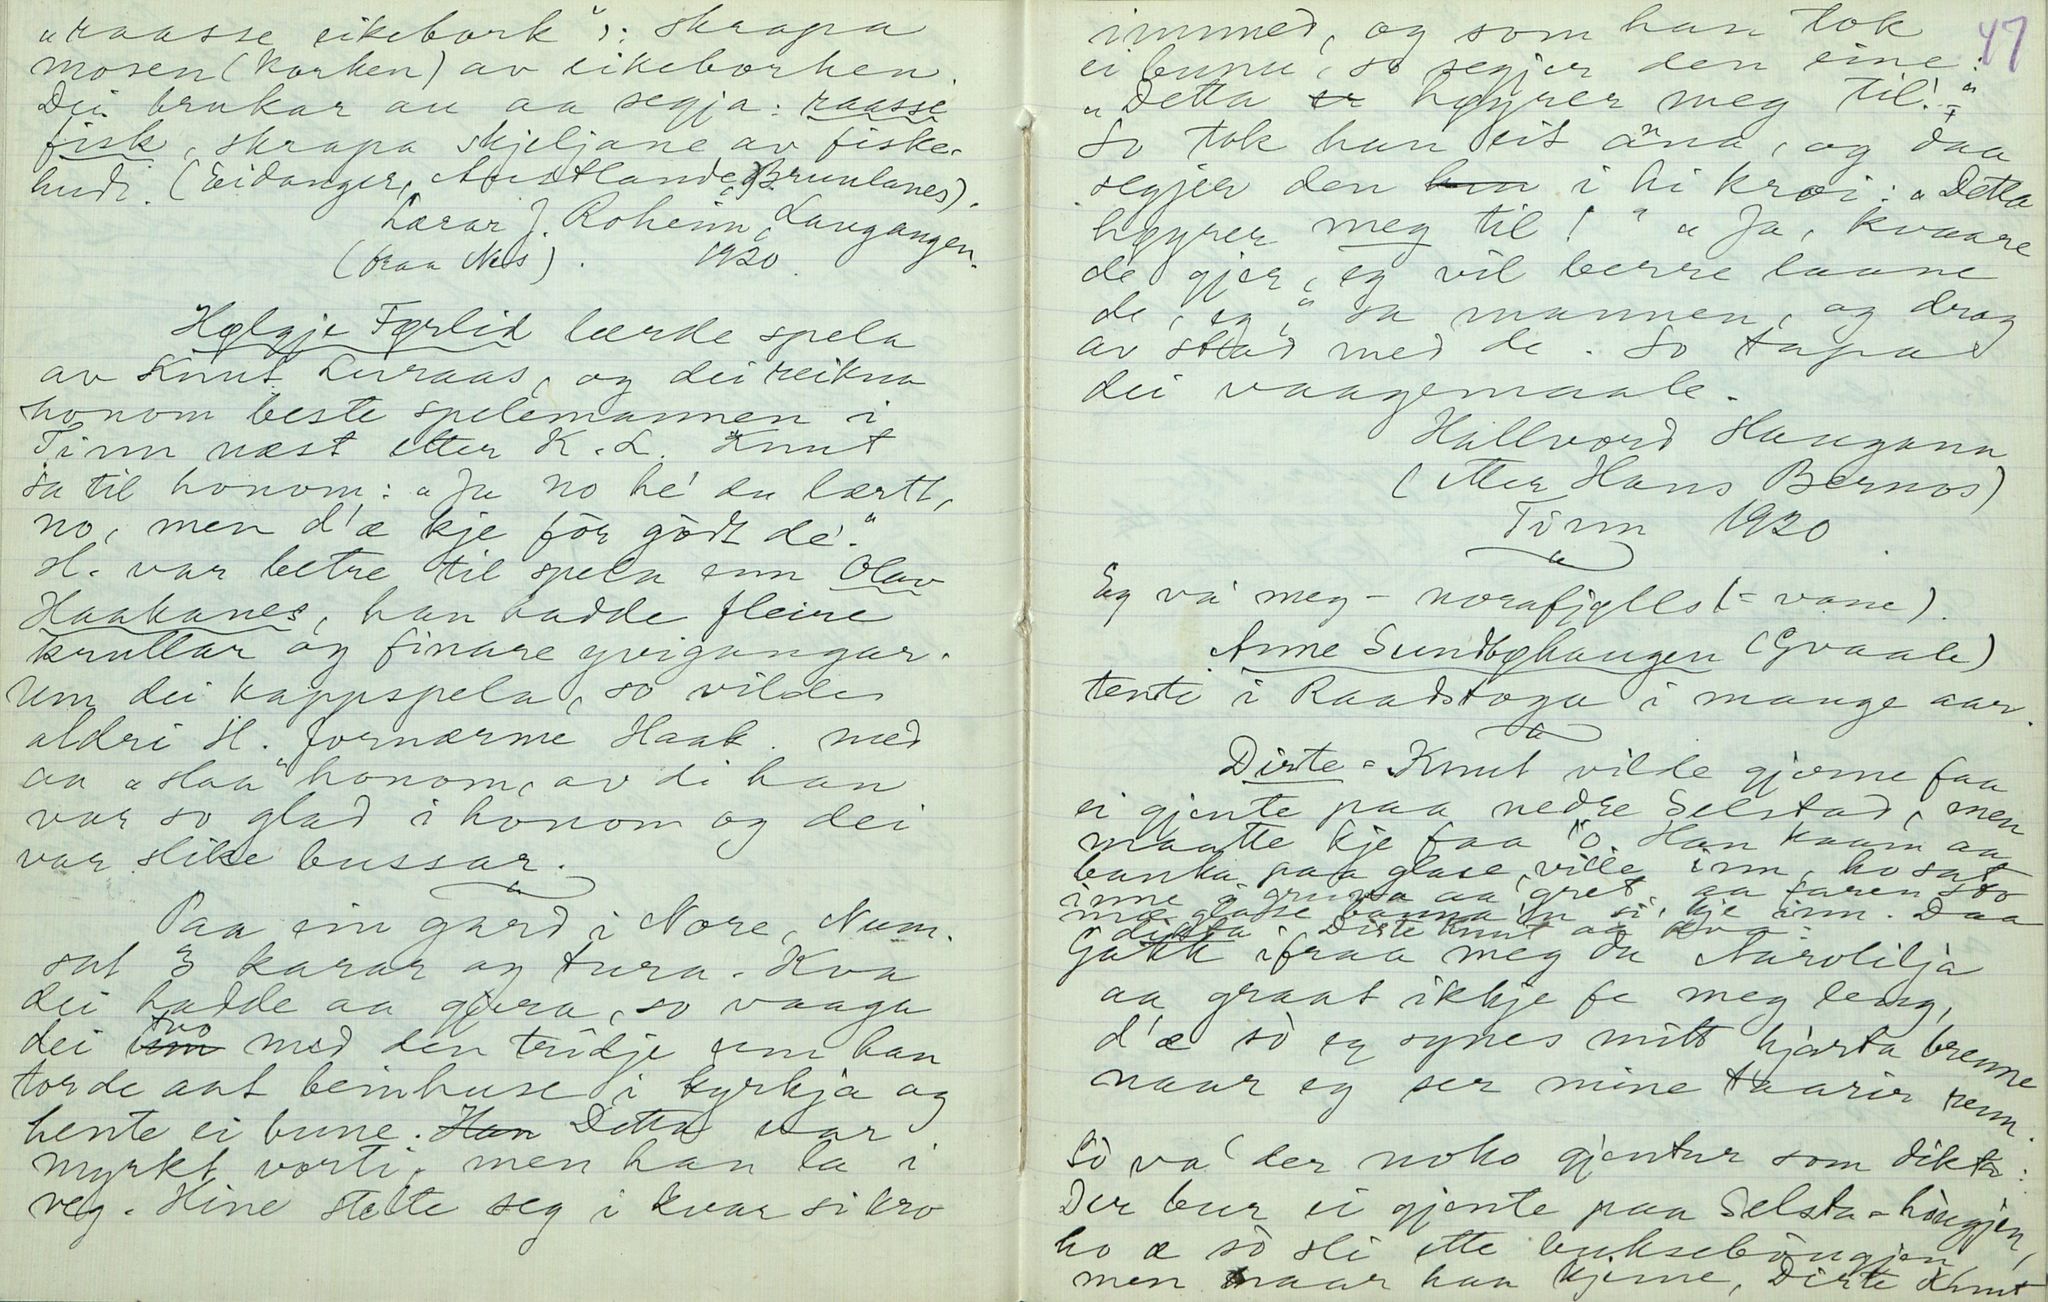 „raasse eikebork“ ɔ: skrapa
mosen (korken) av eikeborken.
Dei brukar au aa segja: raasse
fisk, skrapa skjeljane av fiske-
hudi. (Eidanger, Austlande, Brunlanes).
Lærar J. Roheim, Langangen.
(fraa Nes). 1920.
Hølgje Førlid lærde spela
av Knut Luraas, og dei reikna
honom beste spelemannen i
Tinn næst etter K. L. Knut
sa til honom: „Ja no he' du lært,
no, men d'æ kje för gödt de'.“
H. var betre til spela enn Olav
Haakanes, han hadde fleire
krullar og finare yvigangar.
Um dei kappspela, so vilde
aldri H. fornærme Haak. med
aa „slaa“ honom, av di han
var so glad i honom og dei
var slike bussar.
Paa ein gard i Nore, Num.
sat 3 karar og tura. Kva
dei hadde aa gjera, so vaaga
dei tvo med den tridje um han
torde aat beinhuse i kyrkja og
hente ei bune. Han Detta var
myrkt vorti, men han la i
veg. Hine stelte seg i kvar si kro
47
immed, og som han tok
ei bunu, so segjer den eine:
„Detta er høyrer meg til!“
So tok han eit äna, og daa
segjer den hin i hi kroi: „Detta
høyrer meg til!“ „Ja, kvaare
de gjer, eg vil berre laane
de, eg,“ sa mannen, og drog
av stad med de. So tapa
dei vaagemaale.
Hallvord Haugann
(etter Hans Bernos)
Tinn 1920
Eg va' meg - norafjølls (= vane).
Anne Sundbøhaugen (Gvaale)
tente i Raadstoga i mange aar.
Dirte-Knut vilde gjerne faa
ei gjente paa nedre Selstad, men
maatte kje faa 'o. Han kaam aa
banka paa glase, ville inn, ho sat
inne i gruva aa gret, aa faren sto
mæ glase banna 'n si' kje inn. Daa
dikta Dirte Knut aa kva:
Gakk ifraa meg du Narolilja
aa graat ikkje fe meg leng,
d'æ sò eg synes mitt hjarta brenne
naar eg ser mine taarir renn.
Sò va' der noko gjentur som dikta:
Der bur ei gjente paa Selsta-höugjen,
ho æ sò sli ette bukseböugjen,
men naar han kjeme, Dirte Knut